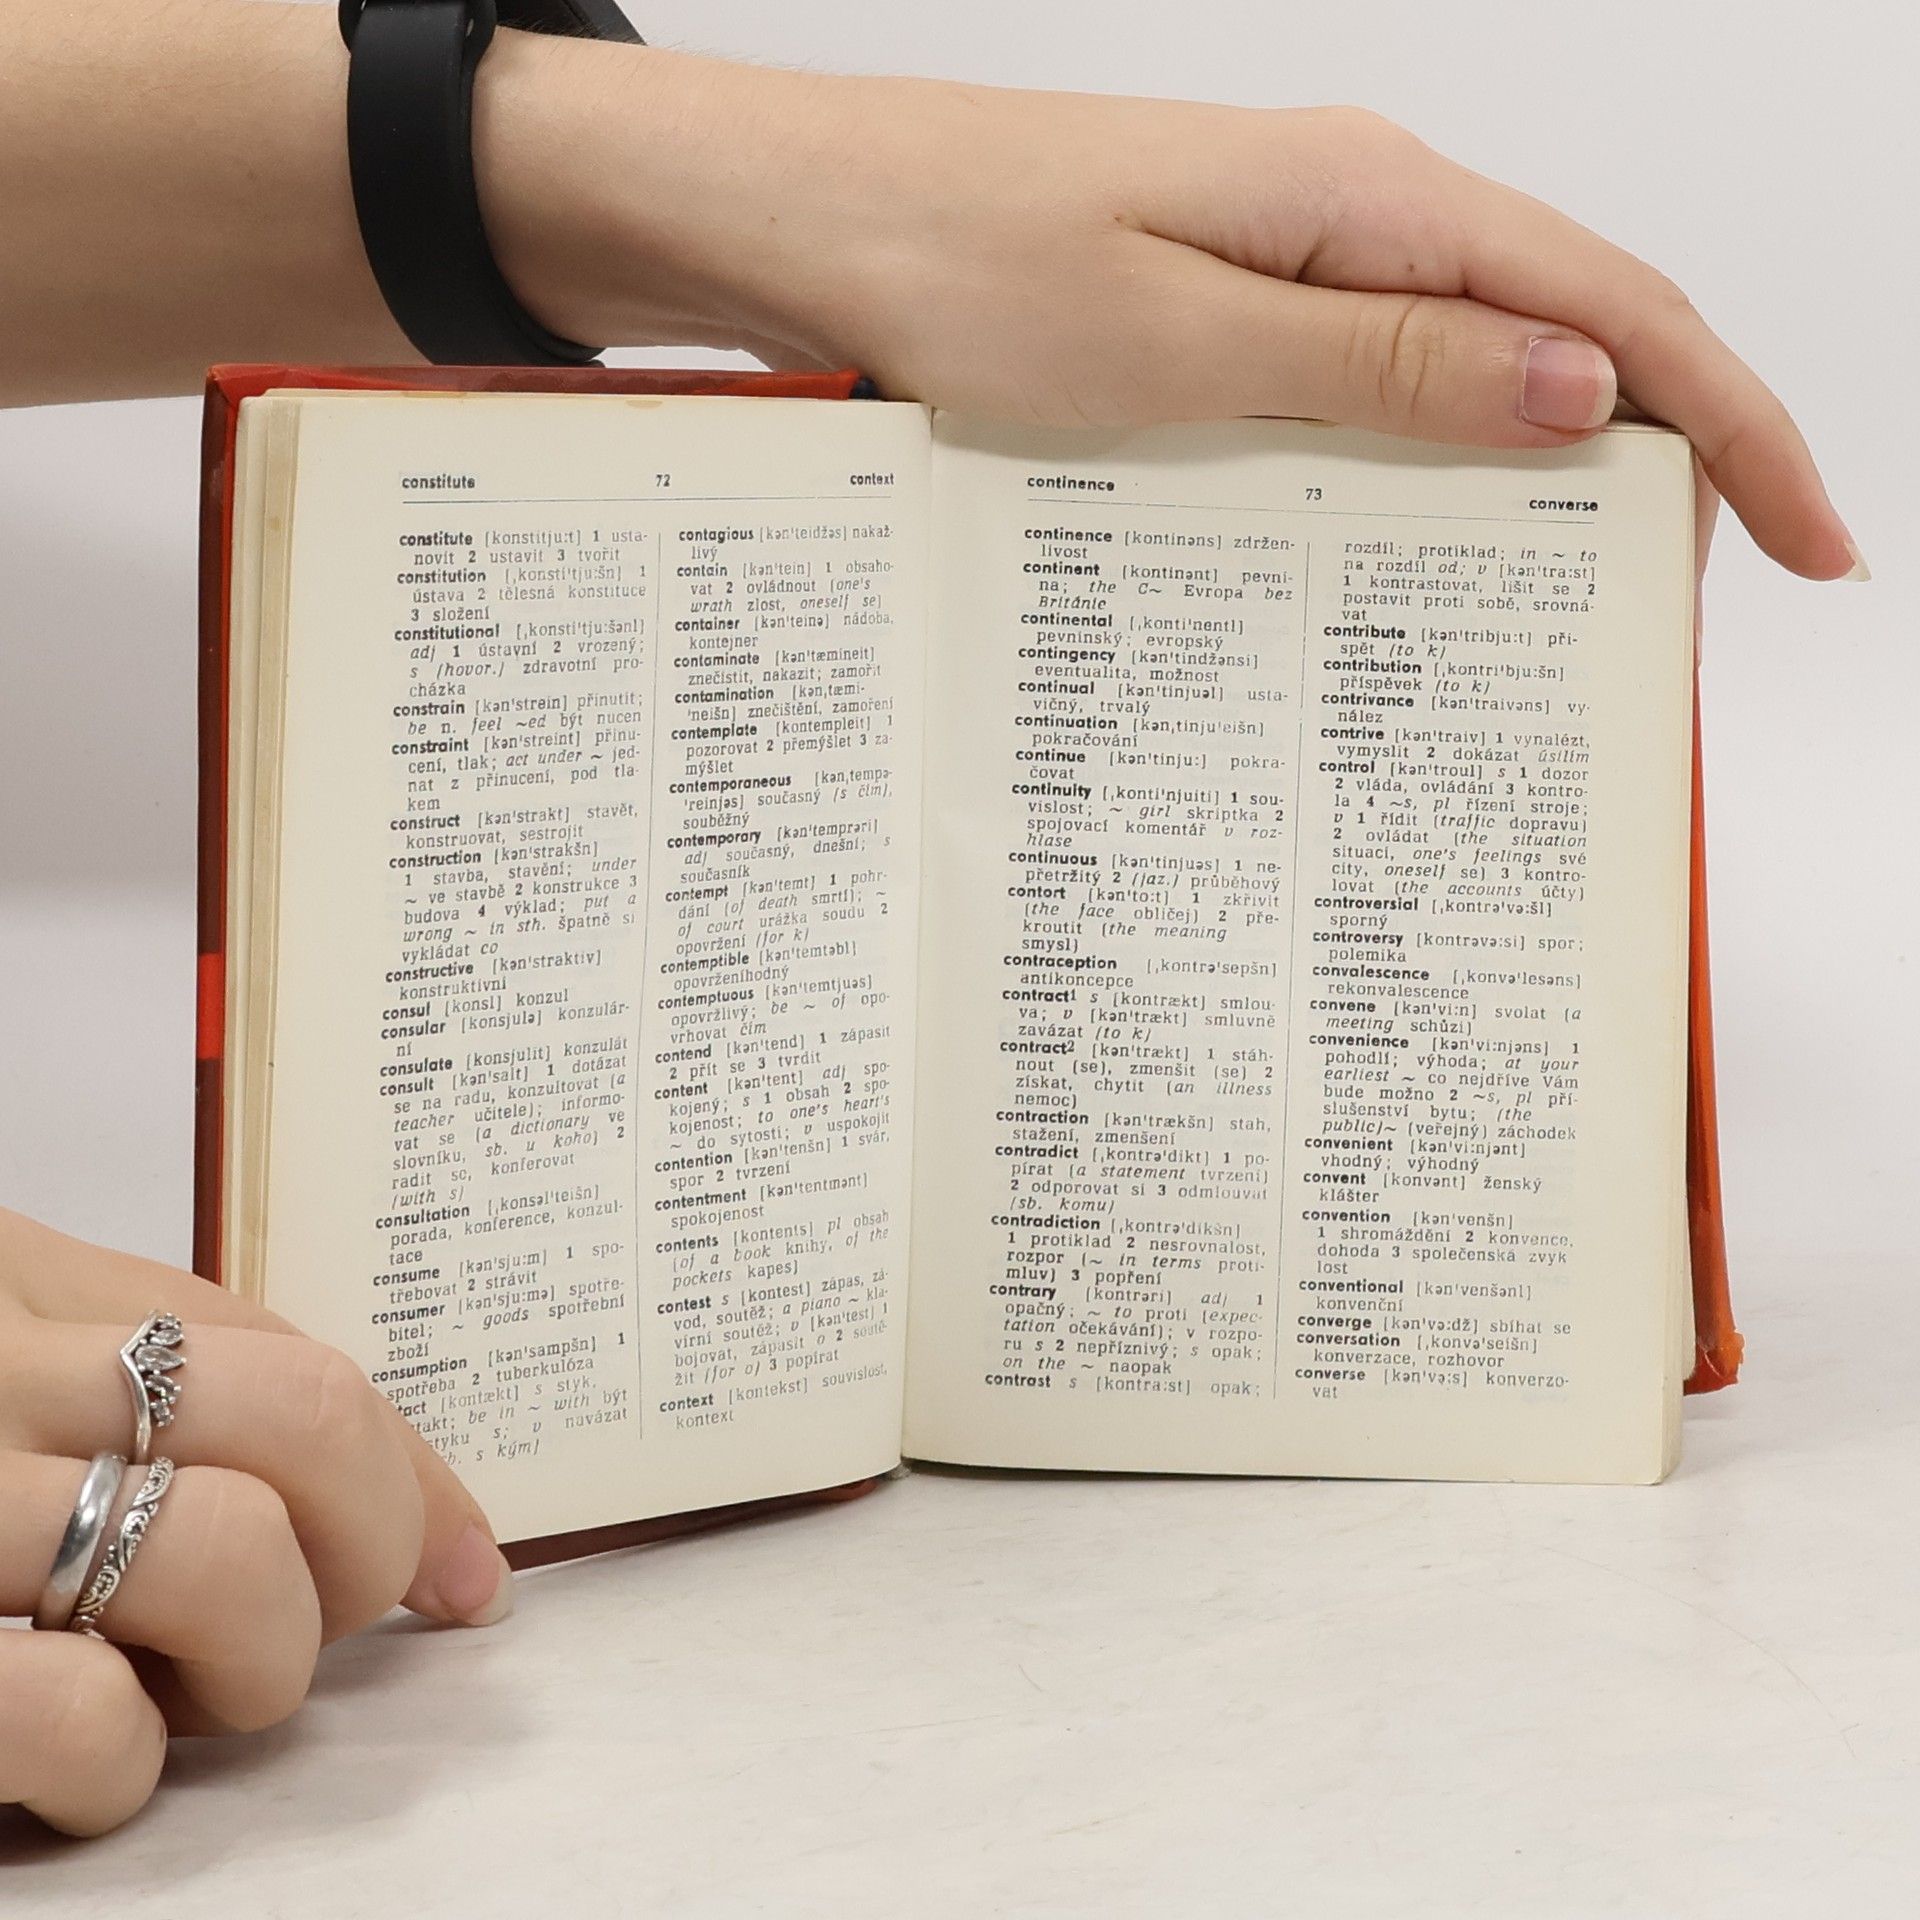 constitute 72 context
constitute [konstitju:t] 1 usta-
novit 2 ustavit 3 tvořit
constitution [ˌkonstiˈtju:šn] 1
ústava 2 tělesná konstituce
3 složení
constitutional [ˌkonstiˈtju:šənl]
adj 1 ústavní 2 vrozený;
s (hovor.) zdravotní pro-
cházka
constrain [kənˈstrein] přinutit;
be n. feel ~ed být nucen
constraint [kənˈstreint] přinu-
cení, tlak; act under ~ jed-
nat z přinucení, pod tla-
kem
construct [kənˈstrakt] stavět,
konstruovat, sestrojit
construction [kənˈstrakšn]
1 stavba, stavění; under
~ ve stavbě 2 konstrukce 3
budova 4 výklad; put a
wrong ~ in sth. špatně si
vykládat co
constructive [kənˈstraktiv]
konstruktivní
consul [konsl] konzul
consular [konsjulə] konzulár-
ní
consulate [konsjulit] konzulát
consult [kənˈsalt] 1 dotázat
se na radu, konzultovat (a
teacher učitele); informo-
vat se (a dictionary ve
slovníku, sb. u koho) 2
radit se, konferovat
(with s)
consultation [ˌkonsəlˈteišn]
porada, konference, konzul-
tace
consume [kənˈsju:m] 1 spo-
třebovat 2 strávit
consumer [kənˈsju:mə] spotře-
bitel; ~ goods spotřební
zboží
consumption [kənˈsampšn] 1
spotřeba 2 tuberkulóza
tact [kontækt] s styk,
takt; be in ~ with být
styku s; v navázat
s kým)
contagious [kənˈteidžəs] nakaž-
livý
contain [kənˈtein] 1 obsaho-
vat 2 ovládnout (one's
wrath zlost, oneself se)
container [kənˈteinə] nádoba,
kontejner
contaminate [kənˈtæmineit]
znečistit, nakazit; zamořit
contamination [kənˌtæmi-
ˈneišn] znečištění, zamoření
contemplate [kontempleit] 1
pozorovat 2 přemýšlet 3 za-
mýšlet
contemporaneous [kənˌtempə-
ˈreinjəs] současný (s čím),
souběžný
contemporary [kənˈtemprəri]
adj současný, dnešní; s
současník
contempt [kənˈtemt] 1 pohr-
dání (of death smrtí); ~
of court urážka soudu 2
opovržení (for k)
contemptible [kənˈtemtəbl]
opovrženíhodný
contemptuous [kənˈtemtjuəs]
opovržlivý; be ~ of opo-
vrhovat čím
contend [kənˈtend] 1 zápasit
2 přít se 3 tvrdit
content [kənˈtent] adj spo-
kojený; s 1 obsah 2 spo-
kojenost; to one's heart's
~ do sytosti; v uspokojit
contention [kənˈtenšn] 1 svár,
spor 2 tvrzení
contentment [kənˈtentmənt]
spokojenost
contents [kontents] pl obsah
(of a book knihy, of the
pockets kapes)
contest s [kontest] zápas, zá-
vod, soutěž; a piano ~ kla-
vírní soutěž; v [kənˈtest] 1
bojovat, zápasit o 2 soutě-
žit (for o) 3 popírat
context [kontekst] souvislost,
kontext
continence 73 converse
continence [kontinəns] zdržen-
livost
continent [kontinənt] pevni-
na; the C~ Evropa bez
Británie
continental [ˌkontiˈnentl]
pevninský; evropský
contingency [kənˈtindžənsi]
eventualita, možnost
continual [kənˈtinjuəl] usta-
vičný, trvalý
continuation [kənˌtinjuˈeišn]
pokračování
continue [kənˈtinju:] pokra-
čovat
continuity [ˌkontiˈnjuiti] 1 sou-
vislost; ~ girl skriptka 2
spojovací komentář v roz-
hlase
continuous [kənˈtinjuəs] 1 ne-
přetržitý 2 (jaz.) průběhový
contort [kənˈto:t] 1 zkřivit
(the face obličej) 2 pře-
kroutit (the meaning
smysl)
contraception [ˌkontrəˈsepšn]
antikoncepce
contract¹ s [kontrækt] smlou-
va; v [kənˈtrækt] smluvně
zavázat (to k)
contract² [kənˈtrækt] 1 stáh-
nout (se), zmenšit (se) 2
získat, chytit (an illness
nemoc)
contraction [kənˈtrækšn] stah,
stažení, zmenšení
contradict [ˌkontrəˈdikt] 1 po-
pírat (a statement tvrzení)
2 odporovat si 3 odmlouvat
(sb. komu)
contradiction [ˌkontrəˈdikšn]
1 protiklad 2 nesrovnalost,
rozpor (~ in terms proti-
mluv) 3 popření
contrary [kontrəri] adj 1
opačný; ~ to proti (expec-
tation očekávání); v rozpo-
ru s 2 nepříznivý; s opak;
on the ~ naopak
contrast s [kontra:st] opak;
rozdíl; protiklad; in ~ to
na rozdíl od; v [kənˈtra:st]
1 kontrastovat, lišit se 2
postavit proti sobě, srovná-
vat
contribute [kənˈtribju:t] při-
spět (to k)
contribution [ˌkontriˈbju:šn]
příspěvek (to k)
contrivance [kənˈtraivəns] vy-
nález
contrive [kənˈtraiv] 1 vynalézt,
vymyslit 2 dokázat úsilím
control [kənˈtroul] s 1 dozor
2 vláda, ovládání 3 kontro-
la 4 ~s, pl řízení stroje;
v 1 řídit (traffic dopravu)
2 ovládat (the situation
situaci, one's feelings své
city, oneself se) 3 kontro-
lovat (the accounts účty)
controversial [ˌkontrəˈvə:šl]
sporný
controversy [kontrəvə:si] spor;
polemika
convalescence [ˌkonvəˈlesəns]
rekonvalescence
convene [kənˈvi:n] svolat (a
meeting schůzi)
convenience [kənˈvi:njəns] 1
pohodlí; výhoda; at your
earliest ~ co nejdříve Vám
bude možno 2 ~s, pl pří-
slušenství bytu; (the
public)~ (veřejný) záchodek
convenient [kənˈvi:njənt]
vhodný; výhodný
convent [konvənt] ženský
klášter
convention [kənˈvenšn]
1 shromáždění 2 konvence,
dohoda 3 společenská zvyk
lost
conventional [kənˈvenšənl]
konvenční
converge [kənˈvə:dž] sbíhat se
conversation [ˌkonvəˈseišn]
konverzace, rozhovor
converse [kənˈvə:s] konverzo-
vat